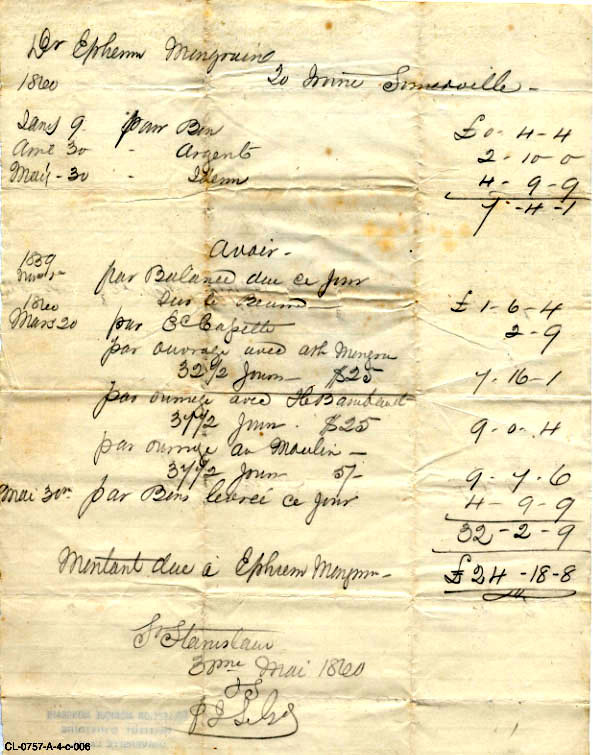 Dr Ephrem Mongrain
1860 To Irvine Somerville -
Janv 9 par Bon £0-4-4
Avril 30 - Argent 2-10-0
Mai - 30 - Idem 4-9-9
7-4-1
Avoir -
1859
par Balance due ce Jour
1860 Sur le Beurre £1-6-4
Mars 20 par 2-9
par ouvrage avec
32 1/2 Jours - $25 7-16-1
par ouvrage avec
37 1/2 Jours . $25 9-0-4
par ouvrage au Moulin -
37 1/2 Jours 5/- 9-7-6
Mai 30 par Bons ce Jour 4-9-9
32-2-9
Montant due a Ephrem Mongrain - £24-18-8
St Stanislas
Mai 1860
CL-0757-A-4-c-006